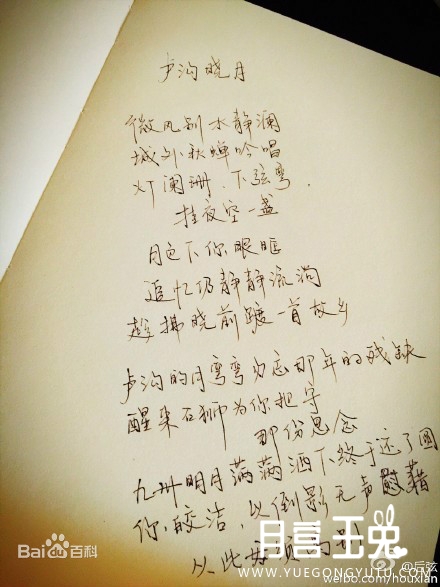 卢沟晓月
微风别水静澜
城外秋蝉吟唱
灯阑珊、下弦弯.
挂夜空一盏
月色下你眼眶
追忆仍静静流淌
趁拂晓前一首故乡
卢沟的月弯弯勿忘那年的残缺
醒来石狮为你把守
那份思念
九州明月满满洒下终于还了圆
你,皎洁,以倒影无声慰藉
从此
Bai百科
月宫玉兔
WWW.YUEGONGYUTU.COM
@后弦
weibo.com/houxian